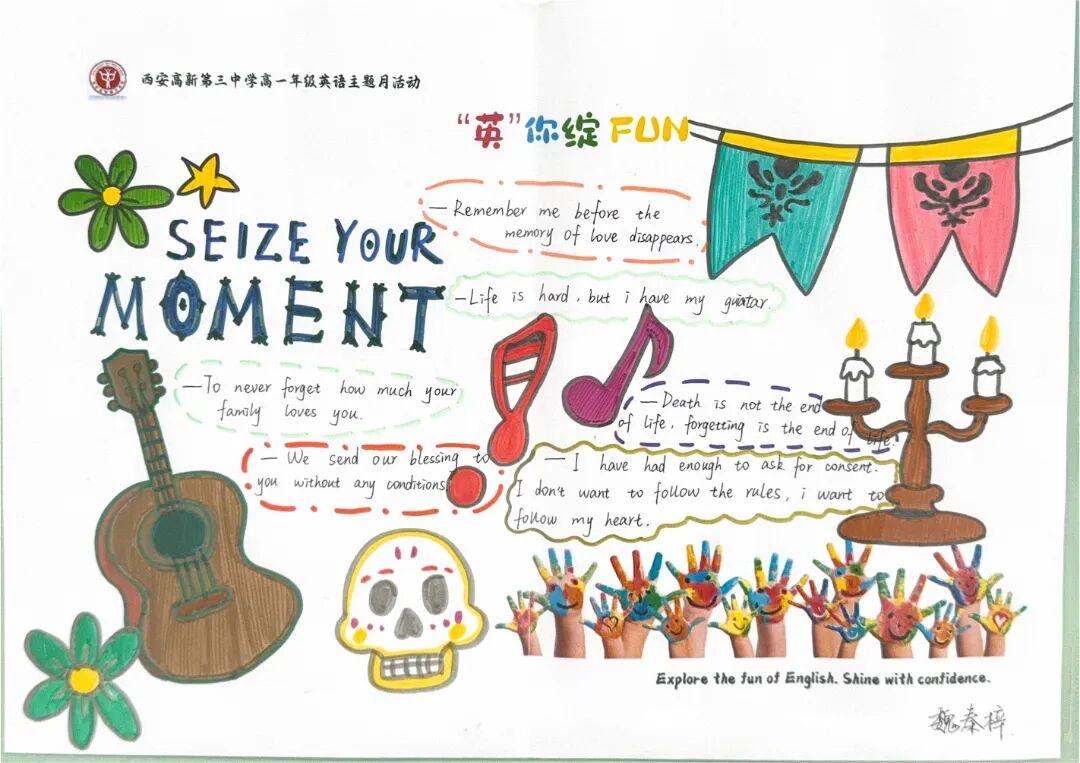 西安高新第三中学高一年级英语主题月活动
“英”你绽FUN
SEIZE YOUR
MOMENT
—Remember me before the
memory of love disappears.
—Life is hard, but i have my guiatar.
—To never forget how much your
family loves you.
—Death is not the end
of life, forgetting is the end of life.
—We send our blessing to
you without any conditions
—I have had enough to ask for consent.
I don't want to follow the rules, i want to
follow my heart.
Explore the fun of English. Shine with confidence.
魏秦梓